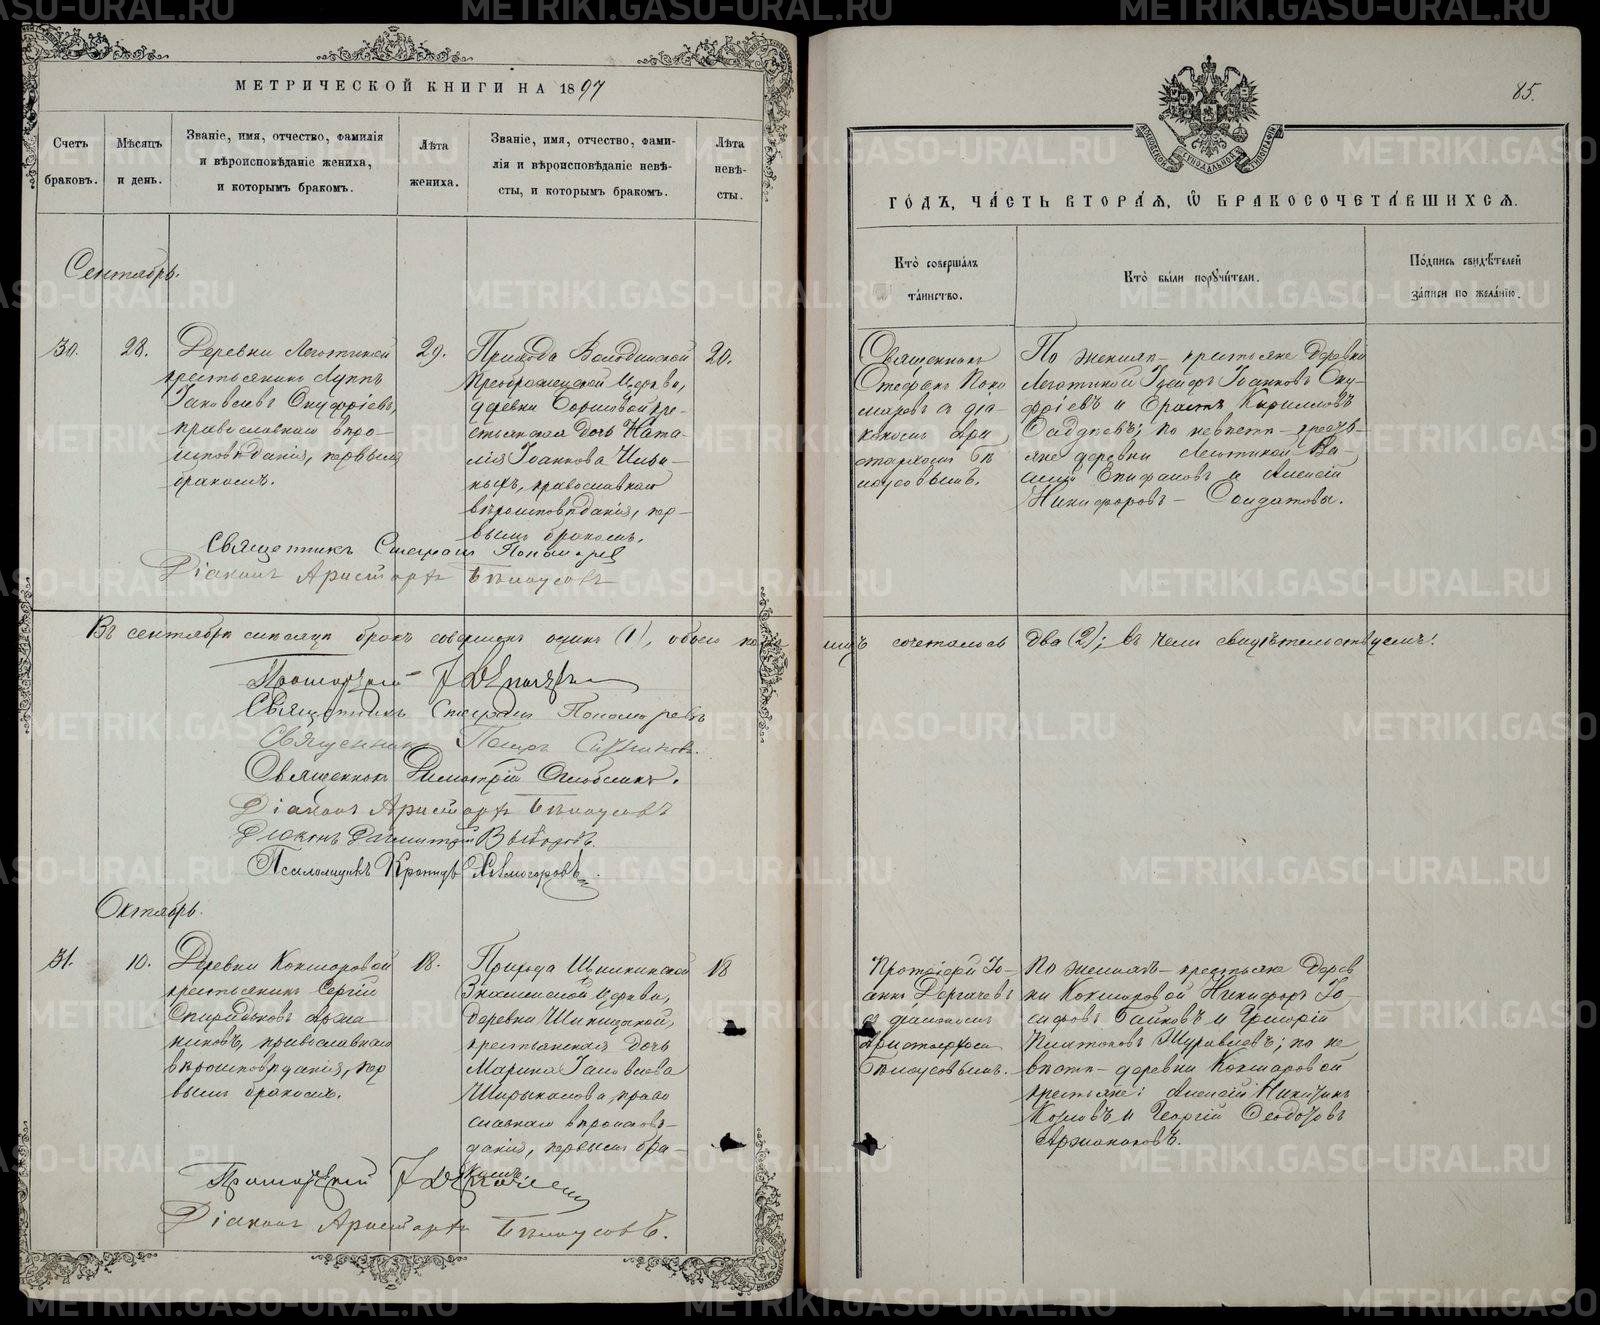 МЕТРИЧЕСКОЙ КНИГИ НА 1897
Счетъ браковъ.
Мѣсяцъ и день.
Званіе, имя, отчество, фамилія
и вѣроисповѣданіе жениха,
и которымъ бракомъ.
Лѣта жениха.
Званіе, имя, отчество, фами-
лія и вѣроисповѣданіе невѣ-
сты, и которымъ бракомъ.
Лѣта невѣ-
сты.
Сентябрь.
30.
28.
Деревни
крестьянинъ Луппъ
Іаковлевъ Онуфріевъ,
православнаго вѣро-
исповѣданія, первымъ
бракомъ.
29.
Прихода Володинской
Преображенской церкви,
деревни кре-
стьянская дочь Ната-
лія Іоаннова Ильи-
ныхъ, православнаго
вѣроисповѣданія, пер-
вымъ бракомъ.
20.
Священникъ Стефанъ Пономаревъ
Діаконъ Аристархъ Бѣлоусовъ
Въ сентябрѣ мѣсяцѣ бракъ совершонъ одинъ (1), обоего пола
Протоіерей
Священникъ Стефанъ Пономаревъ
Священникъ Петръ
Священникъ Димитрій
Діаконъ Аристархъ Бѣлоусовъ
Діаконъ Димитрій
Псаломщикъ Кронидъ
Октябрь.
31.
10.
Деревни Кокшаровой
крестьянинъ Сергій
Спиридоновъ Аржа-
никовъ, православнаго
вѣроисповѣданія, пер
вымъ бракомъ.
18.
Прихода
Знаменской церкви,
деревни
крестьянская дочь
Марина Іаковлева
Ширыкалова, право
славнаго вѣроисповѣ-
данія, первымъ бра-
комъ.
18
Протоіерей
Діаконъ Аристархъ Бѣлоусовъ.
85.
ГОДЪ, ЧАСТЬ ВТОРАЯ, Ѡ БРАКОСОЧЕТАВШИХСЯ.
Кто совершалъ
таинство.
Кто были поручители.
Подпись свидѣтелей
записи по желанію.
Священникъ
Стефанъ Поно
маревъ съ діа-
кономъ Ари
стархомъ Бѣ
лоусовымъ.
По женихѣ – крестьяне деревни
Іосифъ Іоанновъ Ону-
фріевъ и Ерастъ Кирилловъ
по невѣстѣ – кресть-
яне деревни Ва-
силій Епифановъ и Алексій
Никифоровъ – Солдатовы.
лицъ сочеталось два (2); въ чемъ свидѣтельствуемъ:
Протоіерей Іо-
аннъ Дергачевъ
съ діакономъ
Аристархомъ
Бѣлоусовымъ.
По женихѣ – крестьяне дерев
ни Кокшаровой Никифоръ Іо-
сифовъ и Григорій
Платоновъ Журавлевъ; по не
вѣстѣ – деревни Кокшаровой
крестьяне: Алексій Никитинъ
Козловъ и Георгій Ѳеодотовъ
Аржаниковъ.
METRIKI.GASO-URAL.RU